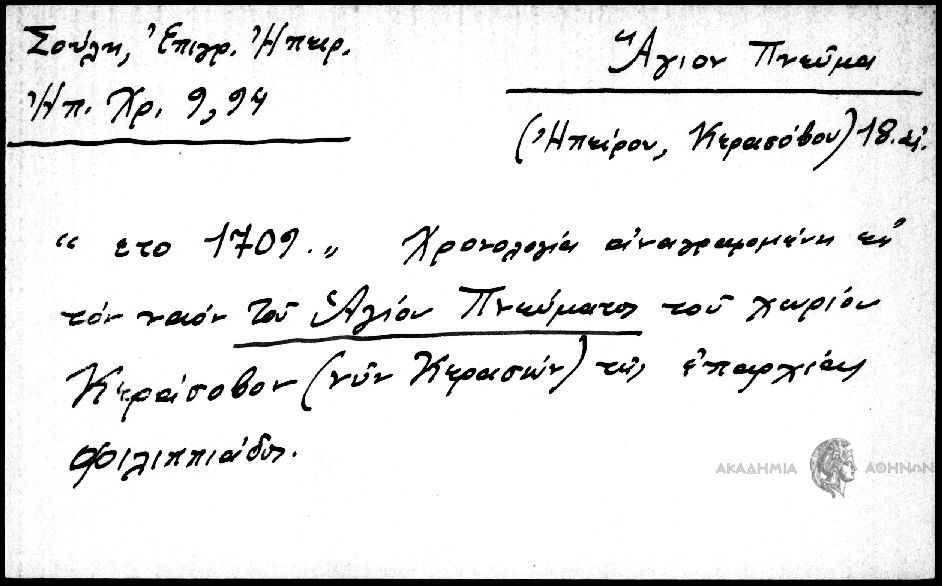 Σούλη, Ἐπιγρ. Ἠπειρ.
Ἠπ. Χρ. 9,94
Ἅγιον Πνεῦμα
(Ἠπείρου, Κερασόβου) 18. αἰ.
“ ετο 1709. „ Χρονολογία ἀναγραφομένη εἰς
τὸν ναὸν τοῦ Ἁγίου Πνεύματος τοῦ χωρίου
Κεράσοβον (νῦν Κερασών) τῆς ἐπαρχίας
Φιλιππιάδος.
ΑΚΑΔΗΜΙΑ ΑΘΗΝΩΝ